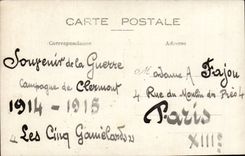 CARTE POSTALE
Correspondance
Adresse
Souvenir de la Guerre
Campagne de Clermont
1914 - 1915
« Les Cinq Gamelards »
Madame A Fajou
4 Rue du Moulin des Prés 4
Paris
XIII